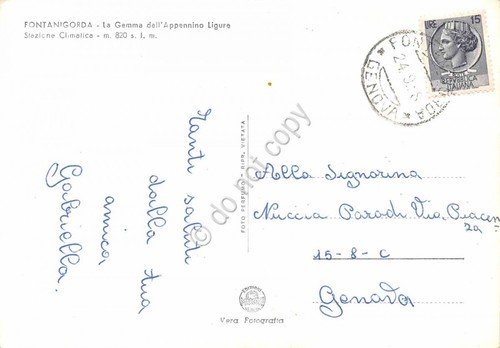 FONTANIGORDA - La Gemma dell'Appennino Ligure
Stazione Climatica - m. 820 s. l. m.
LIRE 15
GENOVA
Tanti saluti
dalla tua
amica
Gabriella.
FOTO - RIPR. VIETATA
do not copy
Alla Signorina
Nuccia Parodi Via Piacen
za
15-8-C
Genova
Vera Fotografia